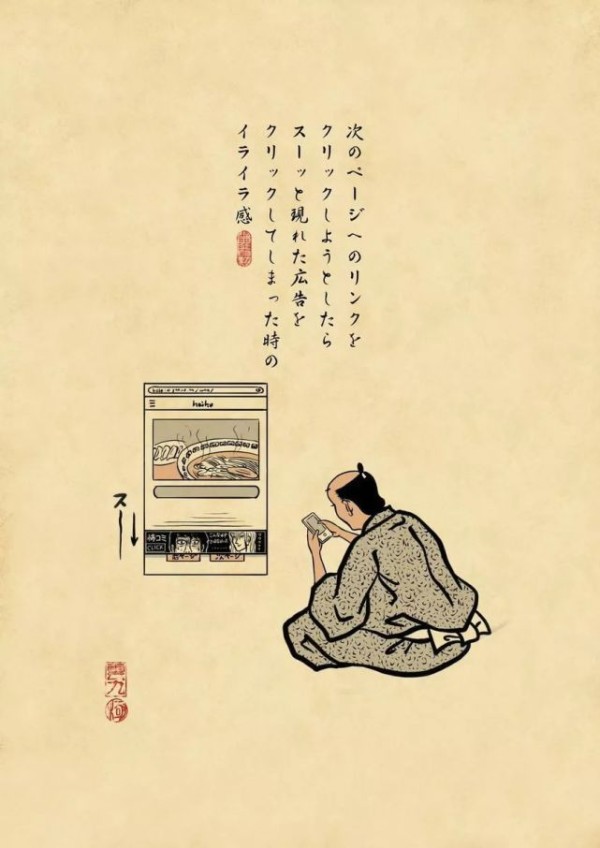 次のページへのリンクを
クリックしようとしたら
スーッと現れた広告を
クリックしてしまった時の
イライラ感
haiho
スー
侍コミ